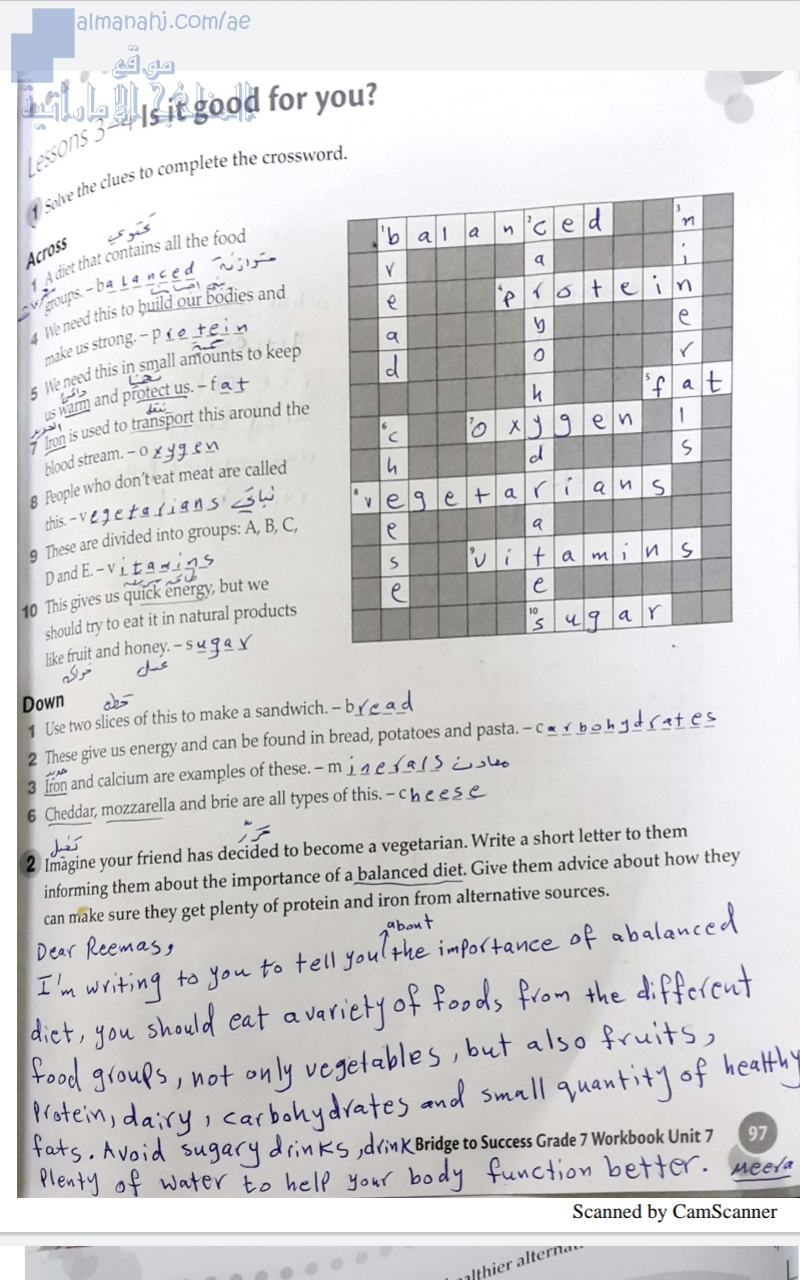 almanahj.com/ae
موقع
المناهج الإماراتية
Lessons 3-4 Is it good for you?
1 Solve the clues to complete the crossword.
Across
تحتوي
1 A diet that contains all the food
groups. – balanced متوازنة
4 We need this to build our bodies and
make us strong. – protein
5 We need this in small amounts to keep
us warm and protect us. – fat
7 Iron is used to transport this around the
blood stream. – oxygen
8 People who don't eat meat are called
this. – vegetarians نباتي
9 These are divided into groups: A, B, C,
D and E. – vitamins
10 This gives us quick energy, but we
should try to eat it in natural products
like fruit and honey. – sugar
عسل
1 balan 2 ced 3 n
r a i
e 4 protein
a b e
d o r
h 5 fat
6 c 7 oxygen l
h d s
8 vegetarians
e a
s 9 vitamins
e e
10 sugar
Down
1 Use two slices of this to make a sandwich. – bread
2 These give us energy and can be found in bread, potatoes and pasta. – carbohydrates
3 Iron and calcium are examples of these. – minerals معادن
حديد
6 Cheddar, mozzarella and brie are all types of this. – cheese
تخيل
2 Imagine your friend has decided to become a vegetarian. Write a short letter to them
informing them about the importance of a balanced diet. Give them advice about how they
can make sure they get plenty of protein and iron from alternative sources.
Dear Reemas,
I'm writing to you to tell you about the importance of abalanced
diet, you should eat avariety of foods from the different
food groups, not only vegetables, but also fruits,
Protein, dairy, carbohydrates and small quantity of healthy
fats. Avoid sugary drinks, drink Bridge to Success Grade 7 Workbook Unit 7 97
Plenty of water to help your body function better. Meera
Scanned by CamScanner